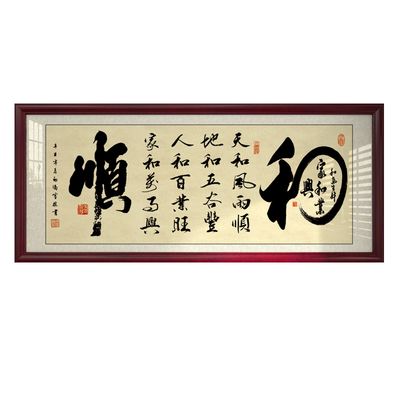 和
和氣生財
家和業興
天和風雨順
地和五谷豐
人和百業旺
家和萬事興
順